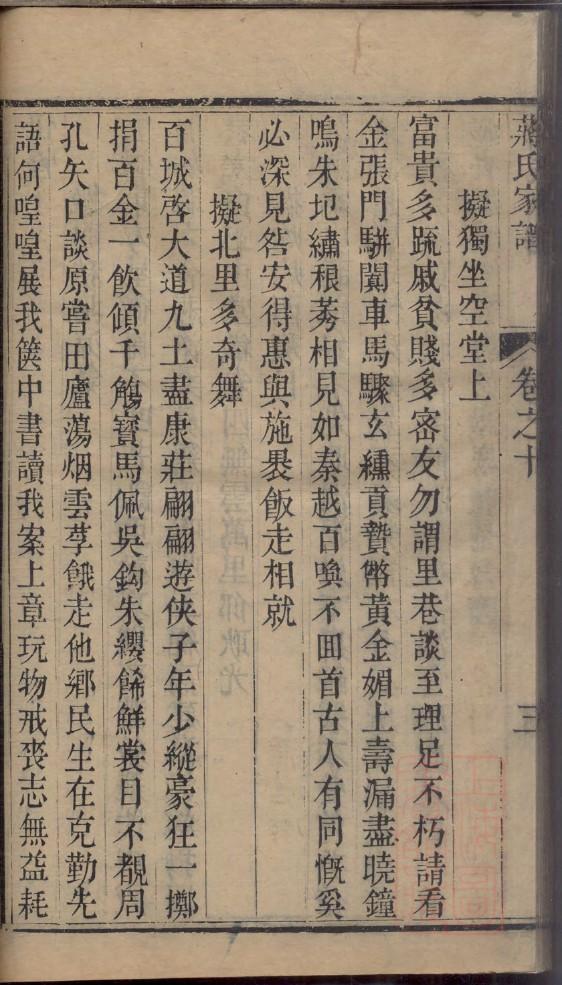 蔣氏家譜 卷之十 三
擬獨坐空堂上
富貴多疏戚貧賤多密友勿謂里巷談至理足不朽請看
金張門駢闐車馬驟玄纁貢贄幣黃金媚上壽漏盡曉鐘
鳴朱圯繡稂莠相見如秦越百喚不囬首古人有同慨奚
必深見咎安得惠與施畏飯走相就
擬北里多奇舞
百城啓大道九土盡康莊翩翩遊俠子年少縱豪狂一擲
捐百金一飲傾千觴寶馬佩吳鈎朱纓餙鮮裳目不覩周
孔矢口談原嘗田廬蕩烟雲莩餓走他鄉民生在克勤先
語何喤喤展我篋中書讀我案上章玩物戒喪志無益耗